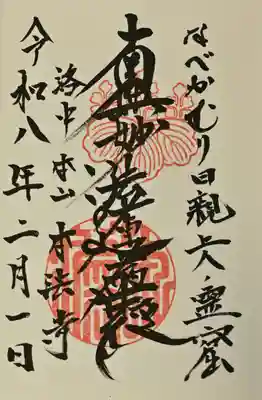 なべかむり日親上人ノ霊窟
南無妙法蓮華経
洛中本山本法寺
令和八年二月一日